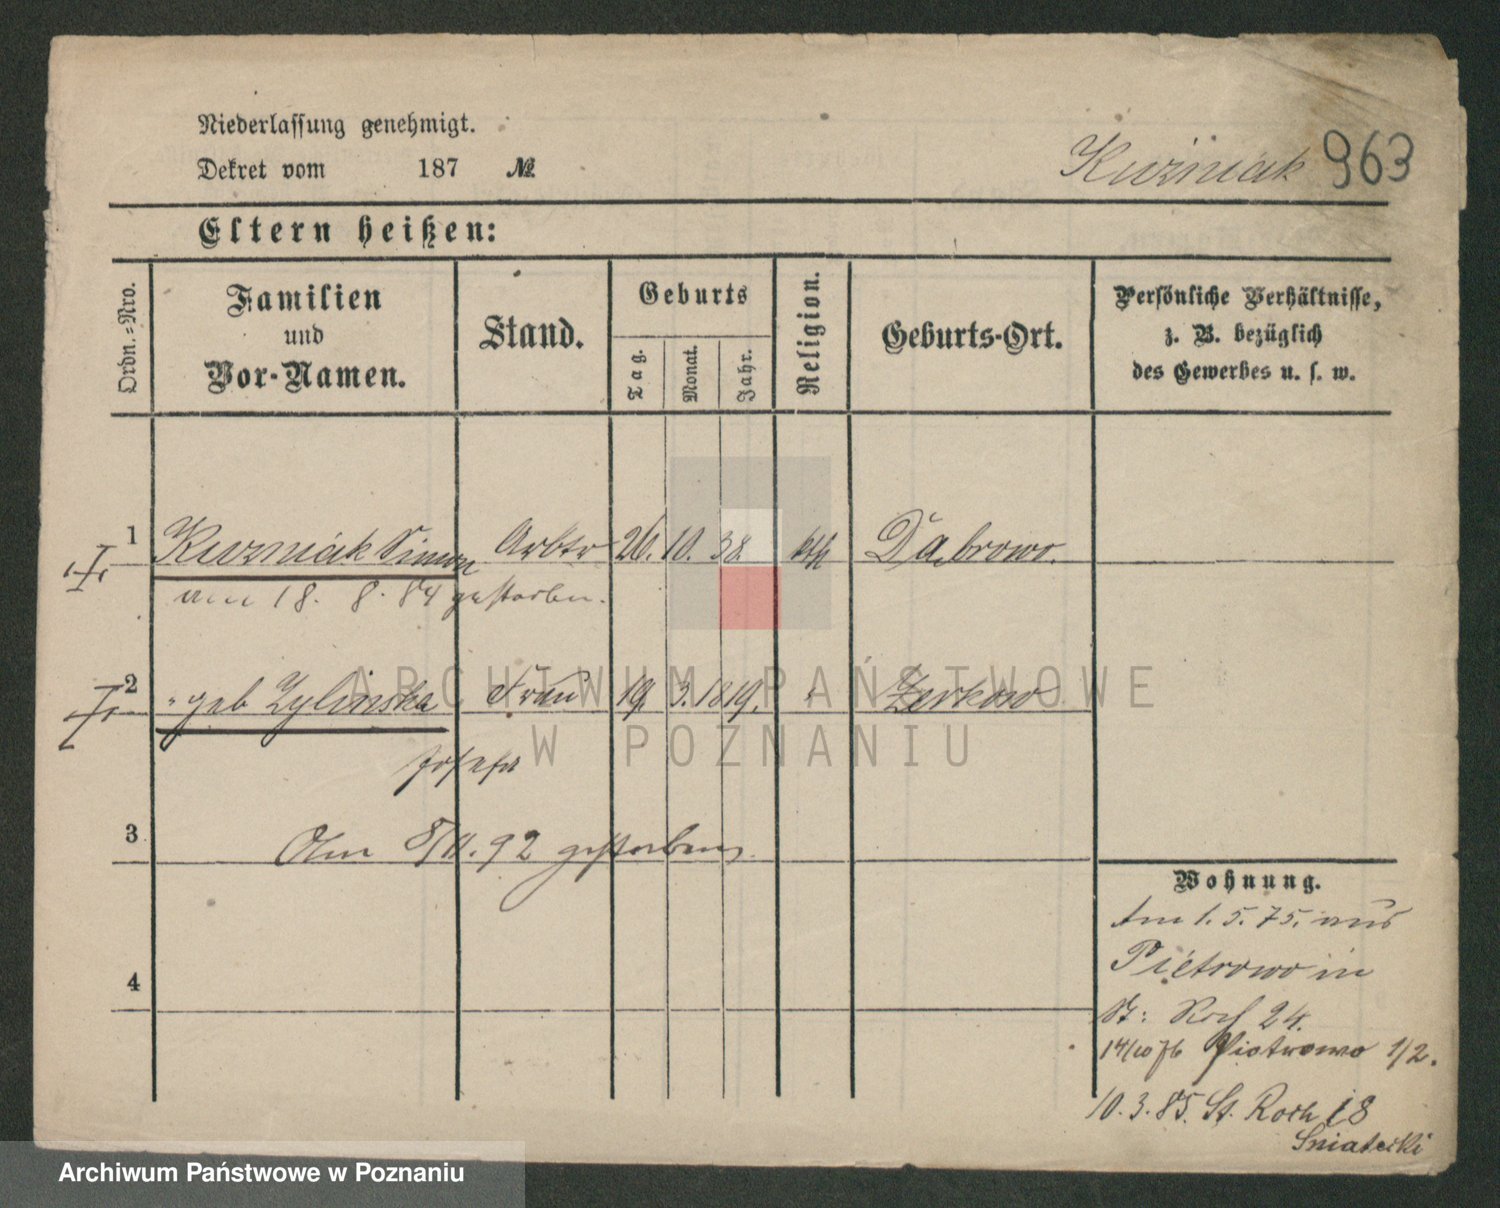 Niederlassung genehmigt.
Dekret vom 187 №
Kuźniak 963
Eltern heißen:
Ordn.-Nro.
Familien
und
Vor-Namen.
Stand.
Geburts
Tag.
Monat.
Jahr.
Religion.
Geburts-Ort.
Persönliche Verhältnisse,
z. B. bezüglich
des Gewerbes u. s. w.
1 Kuzniak Simon Arbtr 26. 10. 38 kth Dąbrowo.
am 18. 8. 84 gestorben.
2 " geb Zylinska Frau 19. 3. 1819. " Zerkow
Josefa
3
Am 8/11. 92 gestorben.
4
Wohnung.
Am 1. 5. 75. aus
Pietrowo in
St: Roch 24.
14/10 76 Piotrowo 1/2.
10. 3. 85. St. Roch 18
Sniatecki
ARCHIWUM PAŃSTWOWE
W POZNANIU
Archiwum Państwowe w Poznaniu